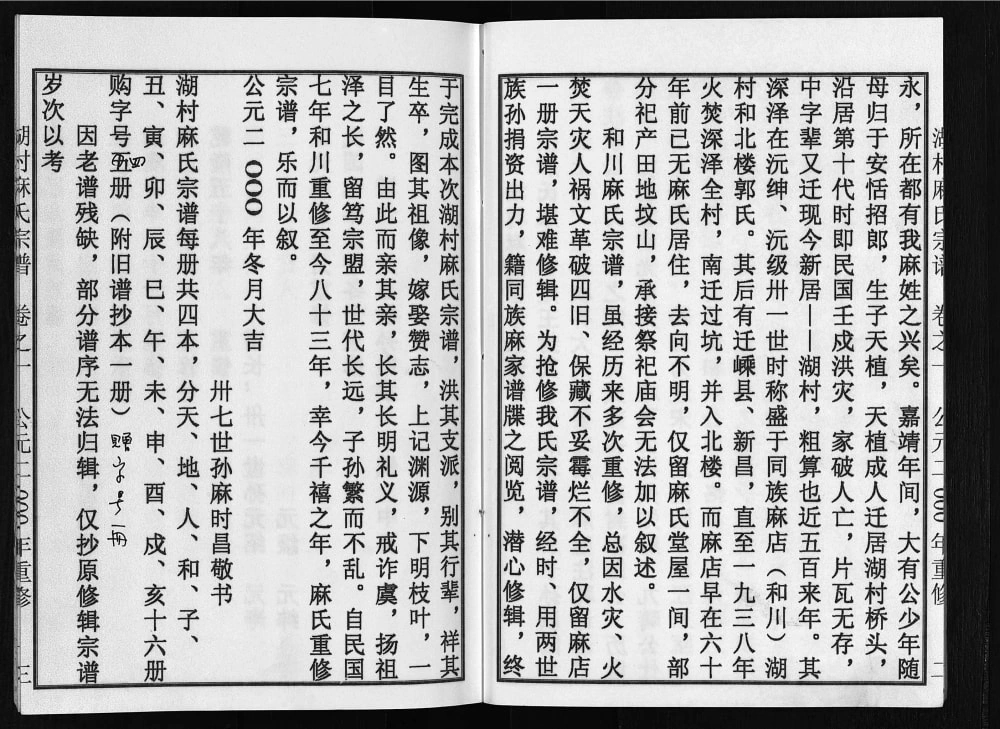 湖村麻氏宗谱 卷之一 公元二〇〇〇年重修 二
永，所在都有我麻姓之兴矣。嘉靖年间，大有公少年随
母归于安恬招郎，生子天植，天植成人迁居湖村桥头，
沿居第十代时即民国壬戍洪灾，家破人亡，片瓦无存，
中字辈又迁现今新居——湖村，粗算也近五百来年。其
深泽在沅绅、沅级卅一世时称盛于同族麻店（和川）湖
村和北楼郭氏。其后有迁嵊县、新昌，直至一九三八年
火焚深泽全村，南迁过坑，并入北楼。而麻店早在六十
年前已无麻氏居住，去向不明，仅留麻氏堂屋一间，部
分祀产田地坟山，承接祭祀庙会无法加以叙述。
和川麻氏宗谱，虽经历来多次重修，总因水灾、火
焚天灾人祸文革破四旧、保藏不妥霉烂不全，仅留麻店
一册宗谱，堪难修辑。为抢修我氏宗谱，其经时、用两世
族孙捐资出力，籍同族麻家谱牒之阅览，潜心修辑，终
于完成本次湖村麻氏宗谱，洪其支派，别其行辈，祥其
生卒，图其祖像，嫁娶赞志，上记渊源，下明枝叶，一
目了然。由此而亲其亲，长其长明礼义，戒诈虞，扬祖
泽之长，留笃宗盟，世代长远，子孙繁而不乱。自民国
七年和川重修至今八十三年，幸今千禧之年，麻氏重修
宗谱，乐而以叙。
公元二〇〇〇年冬月大吉
卅七世孙麻时昌敬书
湖村麻氏宗谱每册共四本，分天、地、人、和、子、
丑、寅、卯、辰、巳、午、未、申、酉、戍、亥十六册
购字号四册（附旧谱抄本一册）赠字号一册
因老谱残缺，部分谱序无法归辑，仅抄原修辑宗谱
岁次以考
湖村麻氏宗谱 卷之一 公元二〇〇〇年重修 三